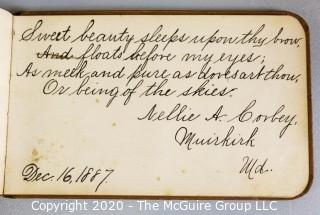 Sweet beauty sleeps upon thy brow,
And floats before my eyes;
As meek, and pure as doves art thou,
Or being of the skies.
Nellie A. Corbey.
Muirkirk
Md.
Dec. 16, 1887.
Copyright © 2020 - The McGuire Group LLC